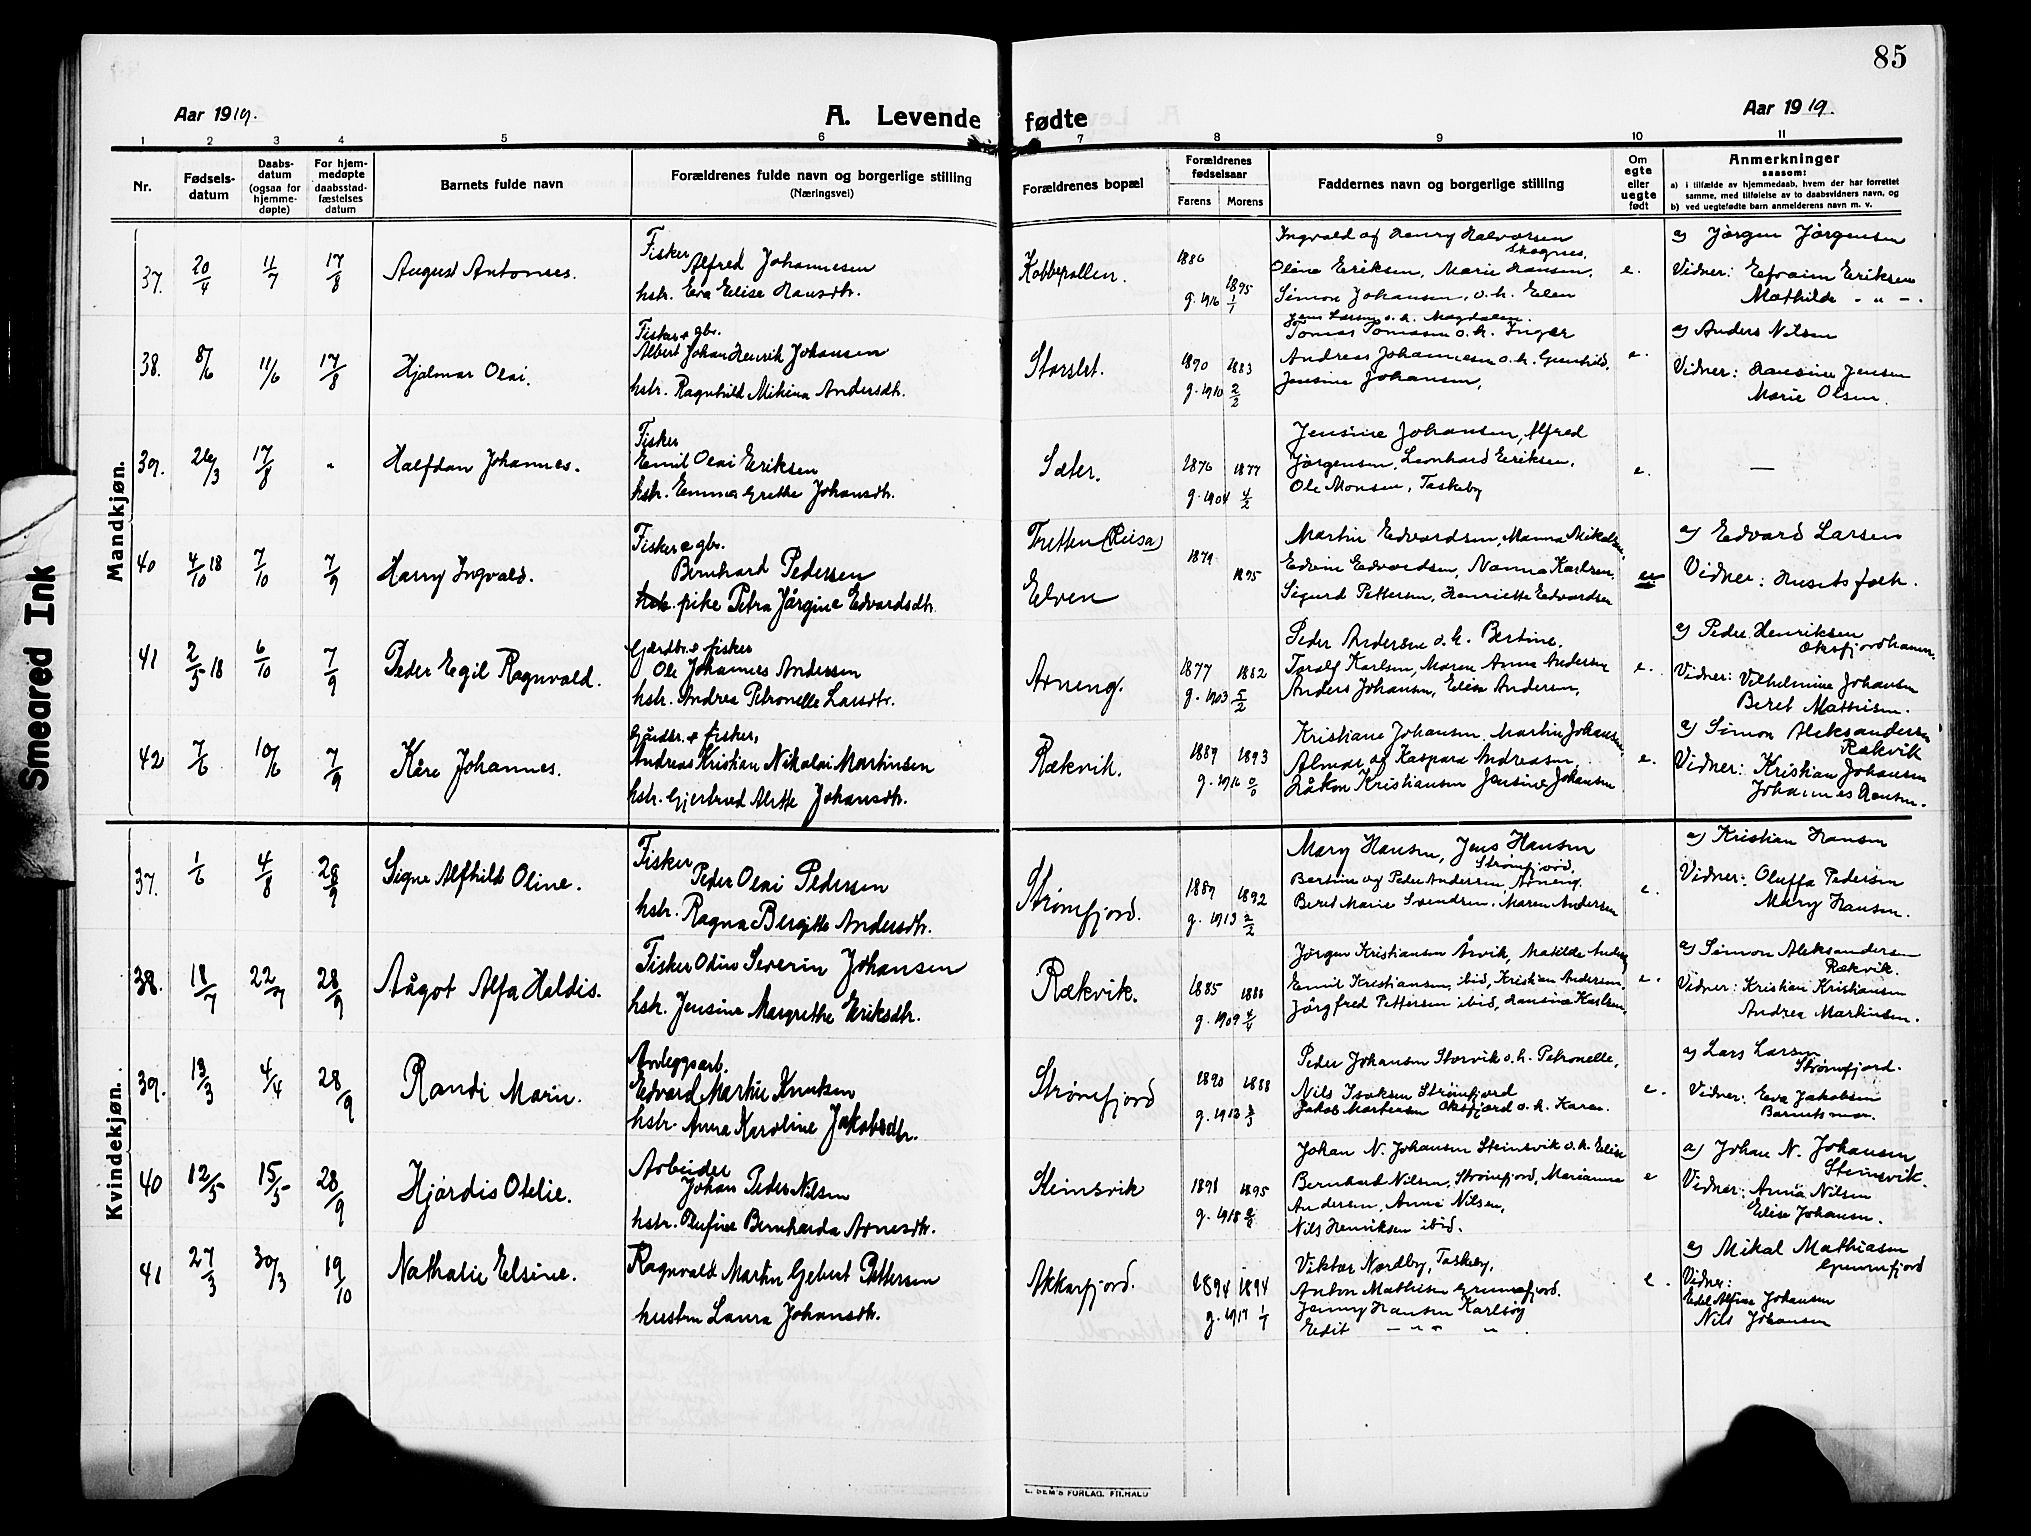 85
Aar 1919.
A. Levende
fødte
Aar 1919.
1 2 3 4 5 6 7 8 9 10 11
Nr.
Fødsels-
datum
Daabs-
datum
(ogsaa for
hjemme-
døpte)
For hjem-
medøpte
daabsstad-
fæstelses
datum
Barnets fulde navn
Forældrenes fulde navn og borgerlige stilling
(Næringsvei)
Forældrenes bopæl
Forældrenes
fødselsaar
Farens Morens
Faddernes navn og borgerlige stilling
Om
egte
eller
uegte
født
Anmerkninger
saasom:
a) i tilfælde av hjemmedaab, hvem der har forrettet
samme, med tilføielse av to daabsvidners navn, og
b) ved uegtefødte barn anmelderens navn m. v.
Mandkjøn.
37. 20/4 11/7 17/8 August Antonius.
Fisker
Alfred Johannesen
hstr. Eva Elise Hansdtr.
Kobbepollen.
1886 1895
g. 1916 1/1
Ingvald og Henry Halvorsen
Skognes,
Oline Eriksen, Marie Hansen,
Simon Johansen, o.h. Elen
Jens Larsen o.h. Magdalen.
e.
a) Jørgen Jørgensen
Vidner: Efraim Eriksen
Mathilde - " -.
38. 8/6 11/6 17/8 Hjalmar Olai.
Fisker + gbr.
Albert Johan Henrik Johansen
hstr. Ragnhild Mikina Andersdtr.
Storslet.
1890 1883
g. 1910 2/2
Tomas Tomasen o.h. Inger
Andreas Johannesen o.h. Gunhild,
Jensine Johansen,
e.
a) Anders Nilsen
Vidner: Hansine Jensen
Marie Olsen.
39. 26/3 17/8 " Halfdan Johannes.
Fisker
Emil Olai Eriksen
hstr. Emma Grethe Johansdtr.
Sæter.
1876 1877
g. 1904 4/2
Jensine Johansen, Alfred
Jørgensen, Leonhard Eriksen,
Ole Monsen, Taskeby
e.
—
40 4/10 18 7/10 7/9 Harry Ingvald.
Fisker + gbr.
Bernhard Pedersen
pike Petra Jørgine Edvardsdtr.
Tretten (Reisa)
Elven
1879 1895
Martin Edvardsen, Manna Mikalsen,
Edvin Edvardsen, Nanna Karlsen,
Sigurd Pettersen, Henriette Edvardsen
a) Edvard Larsen
Vidner: Husets folk.
41 2/5 18 6/10 7/9 Peder Egil Ragnvald.
Gårdbr. + fisker
Ole Johannes Andersen
hstr. Andrea Petronelle Larsdtr.
Arneng.
1877 1882
g. 1903 5/2
Peder Andersen o.h. Bertine,
Toralf Karlsen, Maren Anna Andersen
Anders Johansen, Elise Andersen,
e.
a) Peder Henriksen
Oksfjordhamn.
Vidner: Vilhelmine Johansen
Beret Mathisen.
42 7/6 10/6 7/9 Kåre Johannes.
Gårdbr. + fisker,
Andreas Kristian Nikolai Martinsen
hstr. Gjertrud Alette Johansdtr.
Rækvik.
1889 1893
g. 1916 0/0
Kristiane Johansen, Martin Johansen
Almar og Kaspara Andreasen,
Håkon Kristiansen Jensine Johansen
e.
a) Simon Aleksandersen
Rækvik
Vidner: Kristian Johansen
Johannes Hansen.
Kvindekjøn.
37. 1/6 4/8 28/9 Signe Alfhild Oline.
Fisker
Peder Olai Pedersen
hstr. Ragna Bergitte Andersdtr.
Strømfjord.
1889 1892
g. 1913 2/2
Mary Hansen, Jens Hansen
Strømfjord,
Bertine og Peder Andersen, Arneng.
Beret Marie Svendsen, Maren Andersen
e.
a) Kristian Hansen
Vidner: Oluffa Pedersen
Mary Hansen.
38. 18/7 22/7 28/9 Aågot Alfa Haldis.
Fisker Odin Severin Johansen
hstr. Jensine Margrethe Eriksdtr.
Rækvik.
1885 1888
g. 1909 4/4
Jørgen Kristiansen Årvik, Matilde
Emil Kristiansen, ibid, Kristian Andersen,
Jørgfred Pettersen ibid, Hansine Karlsen,
e.
a) Simon Aleksandersen
Rækvik.
Vidner: Kristian Kristiansen
Andrea Martinsen.
39. 13/3 4/4 28/9 Randi Marie.
Anleggsarb.
Edvard Martin Knutsen
hstr. Anna Karoline Jakobsdtr.
Strømfjord
1890 1888
g. 1913 3/3
Peder Johansen Storvik o.h. Petronelle,
Nils Isaksen Strømfjord
Jakob Mortensen Oksfjord o.h. Karen.
e.
a) Lars Larsen
Strømfjord.
Vidner: Eva Jakobsen
Barnets mor.
40 12/5 15/5 28/9 Hjørdis Otelie.
Arbeider
Johan Peder Nilsen
hstr. Olufine Bernharda Arnesdtr.
Steinsvik
1891 1895
g. 1918
Johan N. Johansen Steinsvik o.h. Elise
Bernhard Nilsen, Strømfjord, Marianna
Andersen, Anna Nilsen,
Nils Henriksen ibid.
e
a) Johan N. Johansen
Steinsvik.
Vidner: Anna Nilsen
Elise Johansen.
41 27/3 30/3 19/10 Nathalie Elsine.
Ragnvald Martin Gebert Pettersen
hustru Laura Johansdtr.
Akkarfjord.
1894 1894
g. 1917 1/1
Viktor Nordby, Taskeby,
Anton Mathisen Grunnfjord.
Jenny Hansen Karlsøy
Edit - " - "
e.
a) Mikal Mathiasen
Grunnfjord
Vidner:
Edel Alfine Johansen
Nils Johansen
E. SEM'S FORLAG. FR.HALD
Smeared Ink